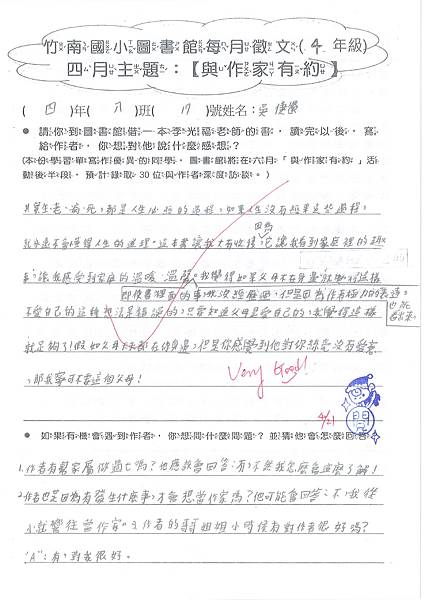 竹南國小圖書館每月徵文(4年級)
四月主題：【與作家有約】
(四)年(八)班(17)號姓名：吳
● 請你到圖書館借一本李光福老師的書，讀完以後，寫
給作者，你想對他說什麼感想？
(本份學習單寫作優異的同學，圖書館將在六月「與作家有約」活
動後半段，預計錄取30位與作者深度訪談。)
其實生、老、病、死，都是人生必經的過程，如果人生沒有經過這些過程，
就永遠不會懂得人生的道理。這本書讓我大有收穫，因為它讓我看到家庭裡的
事，讓我感受到家庭的溫暖、溫馨。我覺得如果父母不在身邊就覺得
即使書裡面的事，我沒經歷過，但是因為作者極力的表達，也能看出來。
不愛自己的這種想法是錯誤的，只要知道父母是愛自己的，我覺得這樣
就足夠了！假如父母天天都在你身邊，但是你感覺到他對你
，那我寧可不要這個父母！
Very Good!
4/21
閱
● 如果有機會遇到作者，你想問什麼問題？並猜他會怎麼回答？
1.作者有幫家屬做過七嗎？他應該會回答：有，不然我怎麼會這麼了解！
2.作者也是因為有發生什麼事，才會想當作家嗎？他可能會回答：不，我從
小就嚮往當作家。3.作者的 姐姐小時侯有對作者很好嗎？
"A"：有，對我很好。